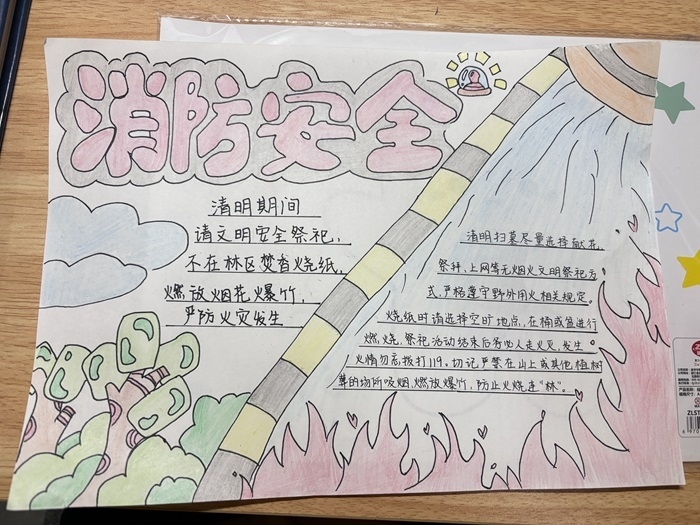 消防安全
清明期间
请文明安全祭祀,
不在林区焚香烧纸,
燃放烟花爆竹,
严防火灾发生
清明扫墓尽量选择献花,
祭拜,上网等无烟火文明祭祀方
式,严格遵守野外用火相关规定。
烧纸时请选择空旷地点,在桶或盆进行
燃烧,祭祀活动结束后务必人走火灭,发生
火情勿忘拨打119。切记严禁在山上或其他植树
葬的场所吸烟,燃放爆竹,防止火烧连"林"。
ZLST